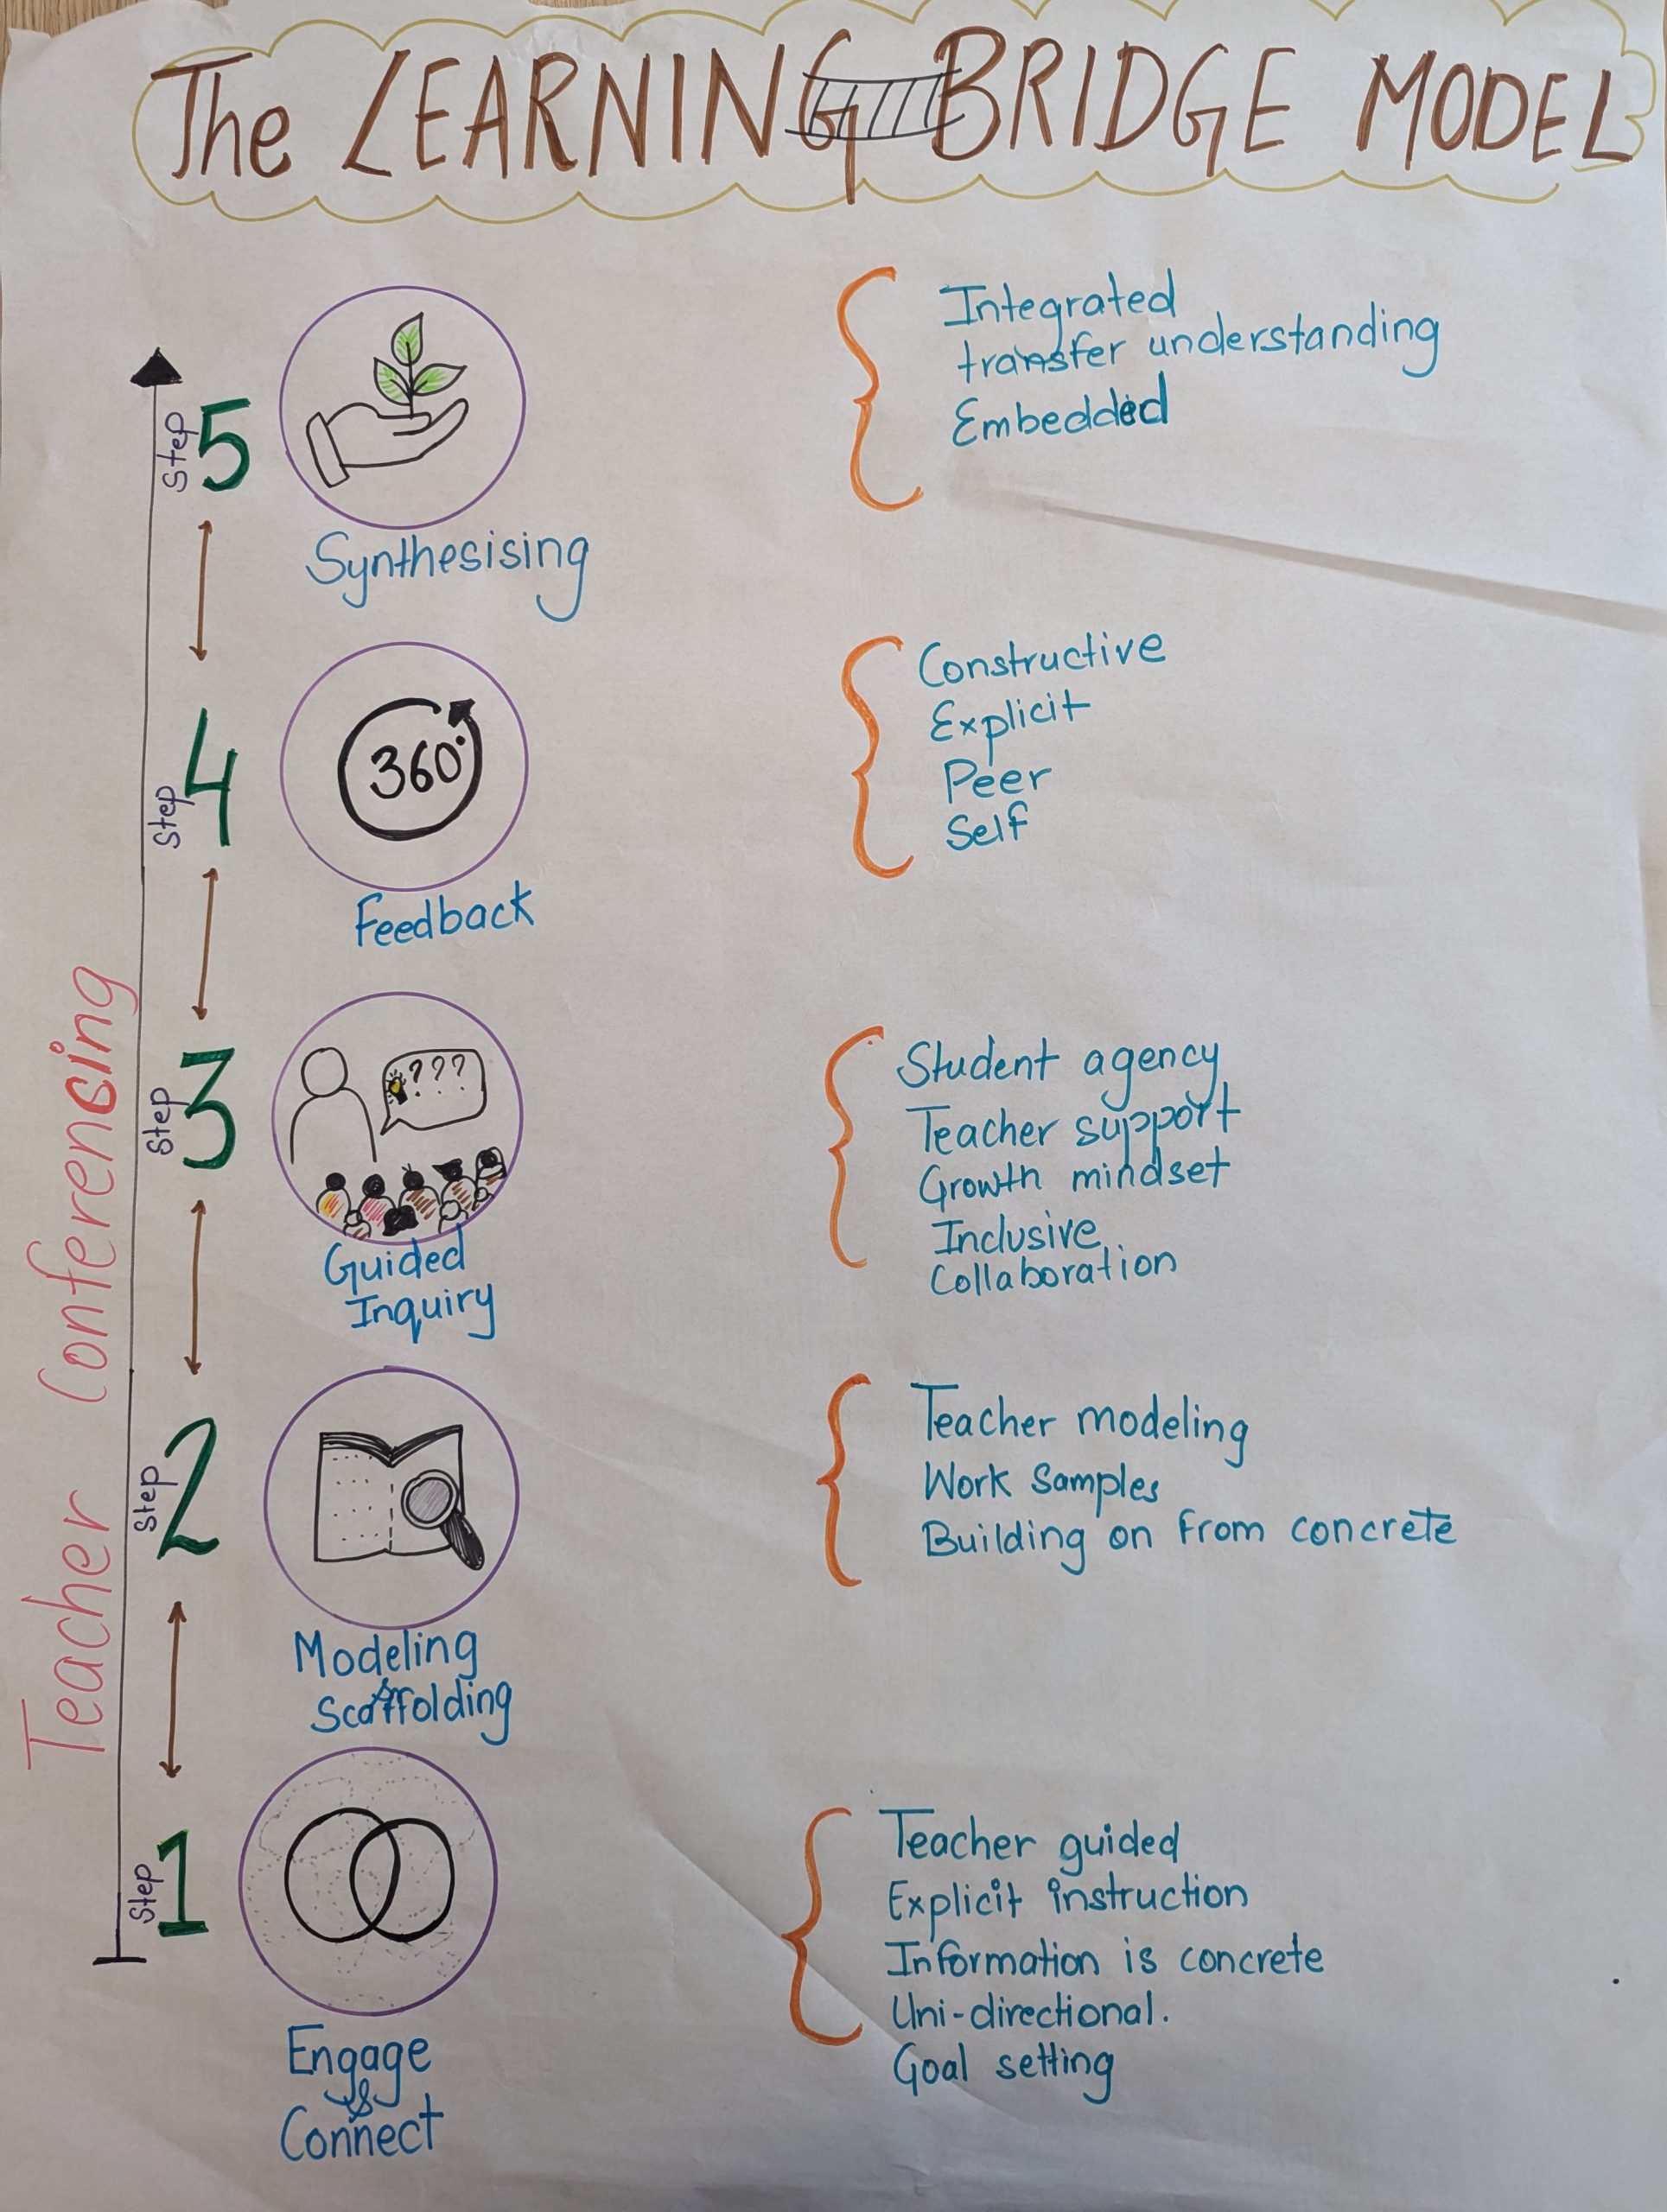 The LEARNING BRIDGE MODEL
Step 5
Synthesising
Integrated
transfer understanding
Embedded
Step 4
360°
Feedback
Constructive
Explicit
Peer
Self
Teacher Conferencing
Step 3
???
Guided
Inquiry
Student agency
Teacher support
Growth mindset
Inclusive
Collaboration
Step 2
Modeling
&
Scaffolding
Teacher modeling
Work Samples
Building on from concrete
Step 1
Engage
&
Connect
Teacher guided
Explicit instruction
Information is concrete
Uni-directional.
Goal setting